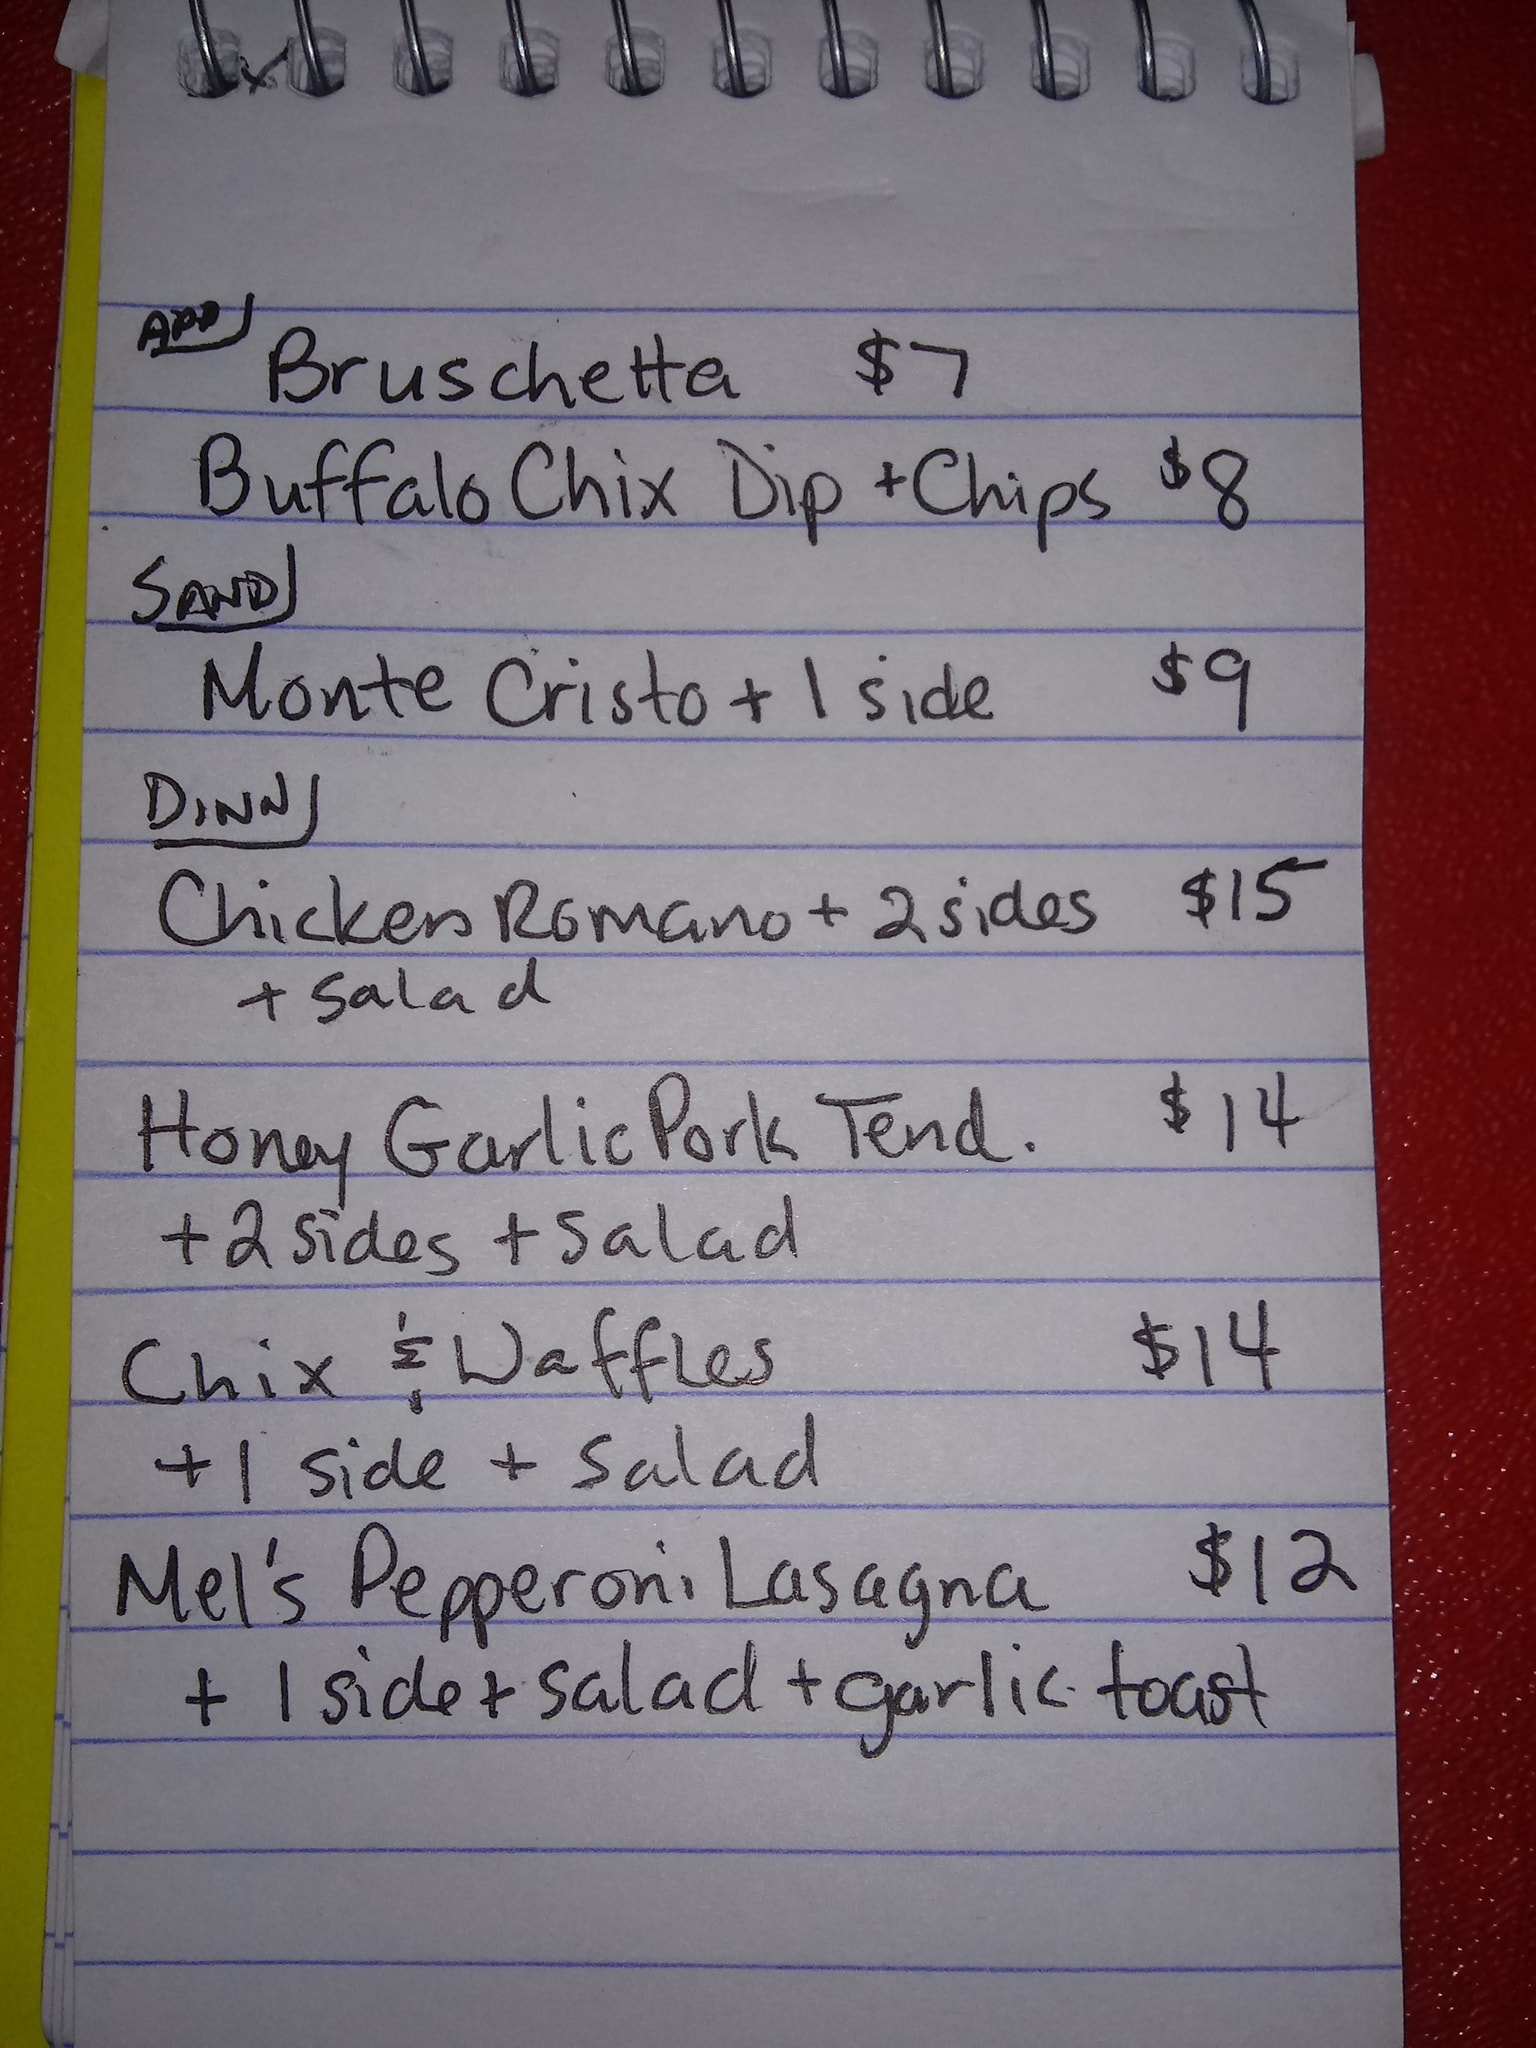 APP
Bruschetta $7
Buffalo Chix Dip + Chips $8
SAND
Monte Cristo + 1 side $9
DINN
Chicken Romano + 2 sides $15
+ salad
Honey Garlic Pork Tend. $14
+ 2 sides + salad
Chix & Waffles $14
+ 1 side + salad
Mel's Pepperoni Lasagna $12
+ 1 side + salad + garlic toast